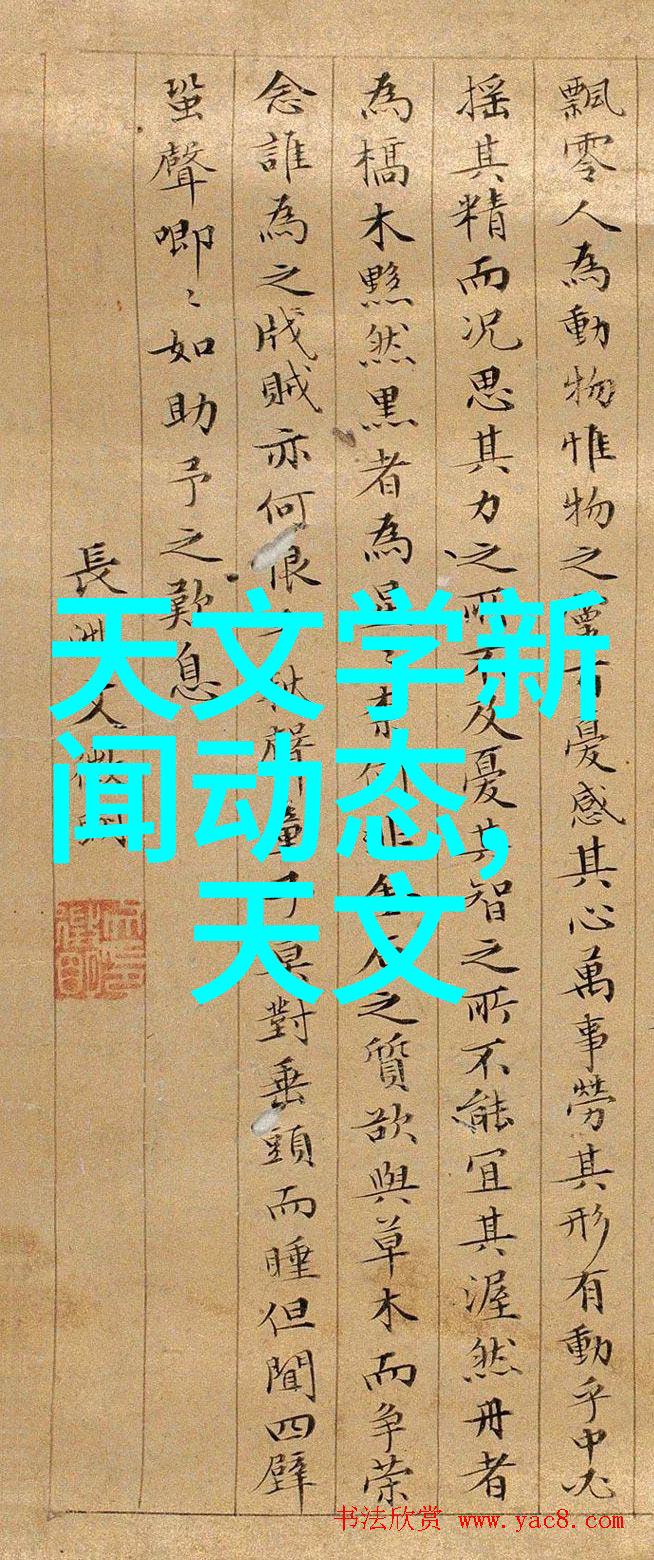 飄零人為動物惟物之靈有憂感其心萬事勞其形有動乎中必
搖其精而況思其力之所不及憂其智之所不能宜其渥然丹者
為槁木黟然黑者為星星奈何非金石之質欲與草木而爭榮
念誰為之戕賊亦何恨乎秋聲童子莫對垂頭而睡但聞四壁
蛩聲唧〻如助予之歎息
長洲文徵明
天文学新
闻动态,
天文
书法欣赏 www.yac8.com